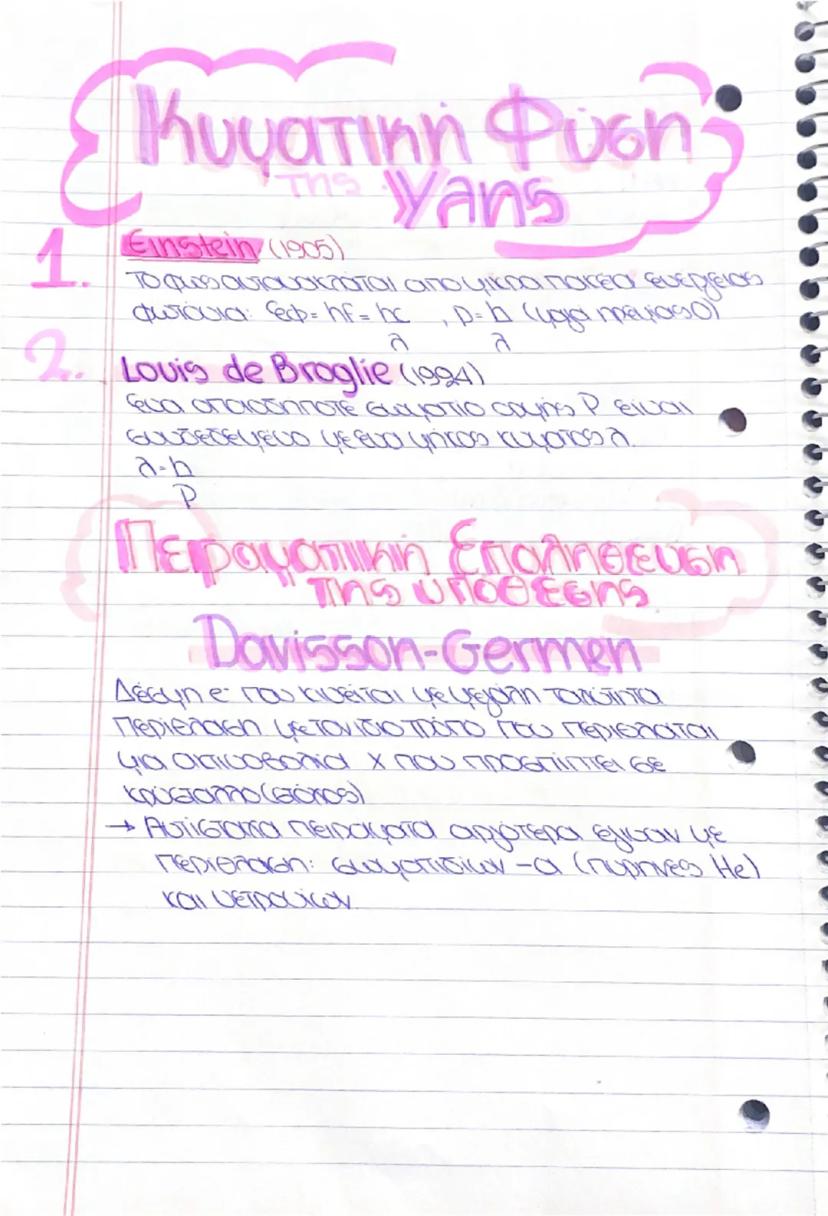 Κυματική Φύση
της Ύλης
1. Einstein (1905)
Το φως αποτελείται από μικρά πακέτα ενέργειας
φωτόνια: Εφ = hf = hc , p = h (μάζα ηρεμίας 0)
λ λ
2. Louis de Broglie (1994)
Ένα οποιοδήποτε σωματίο ορμής P είναι
συνδεδεμένο με ένα μήκος κύματος λ.
λ = h
P
Πειραματική Επαλήθευση
της υπόθεσης
Davisson-Germen
Δέσμη e⁻ που κινείται με μεγάλη ταχύτητα
περιέθλαση με τον ίδιο τρόπο που περιθλάται
μια ακτινοβολία X που προσπίπτει σε
κρύσταλλο (στόχος)
→ Αντίστοιχα πειράματα αργότερα έγιναν με
περίθλαση: σωματιδίων -α (πυρήνες He)
και νετρονίων